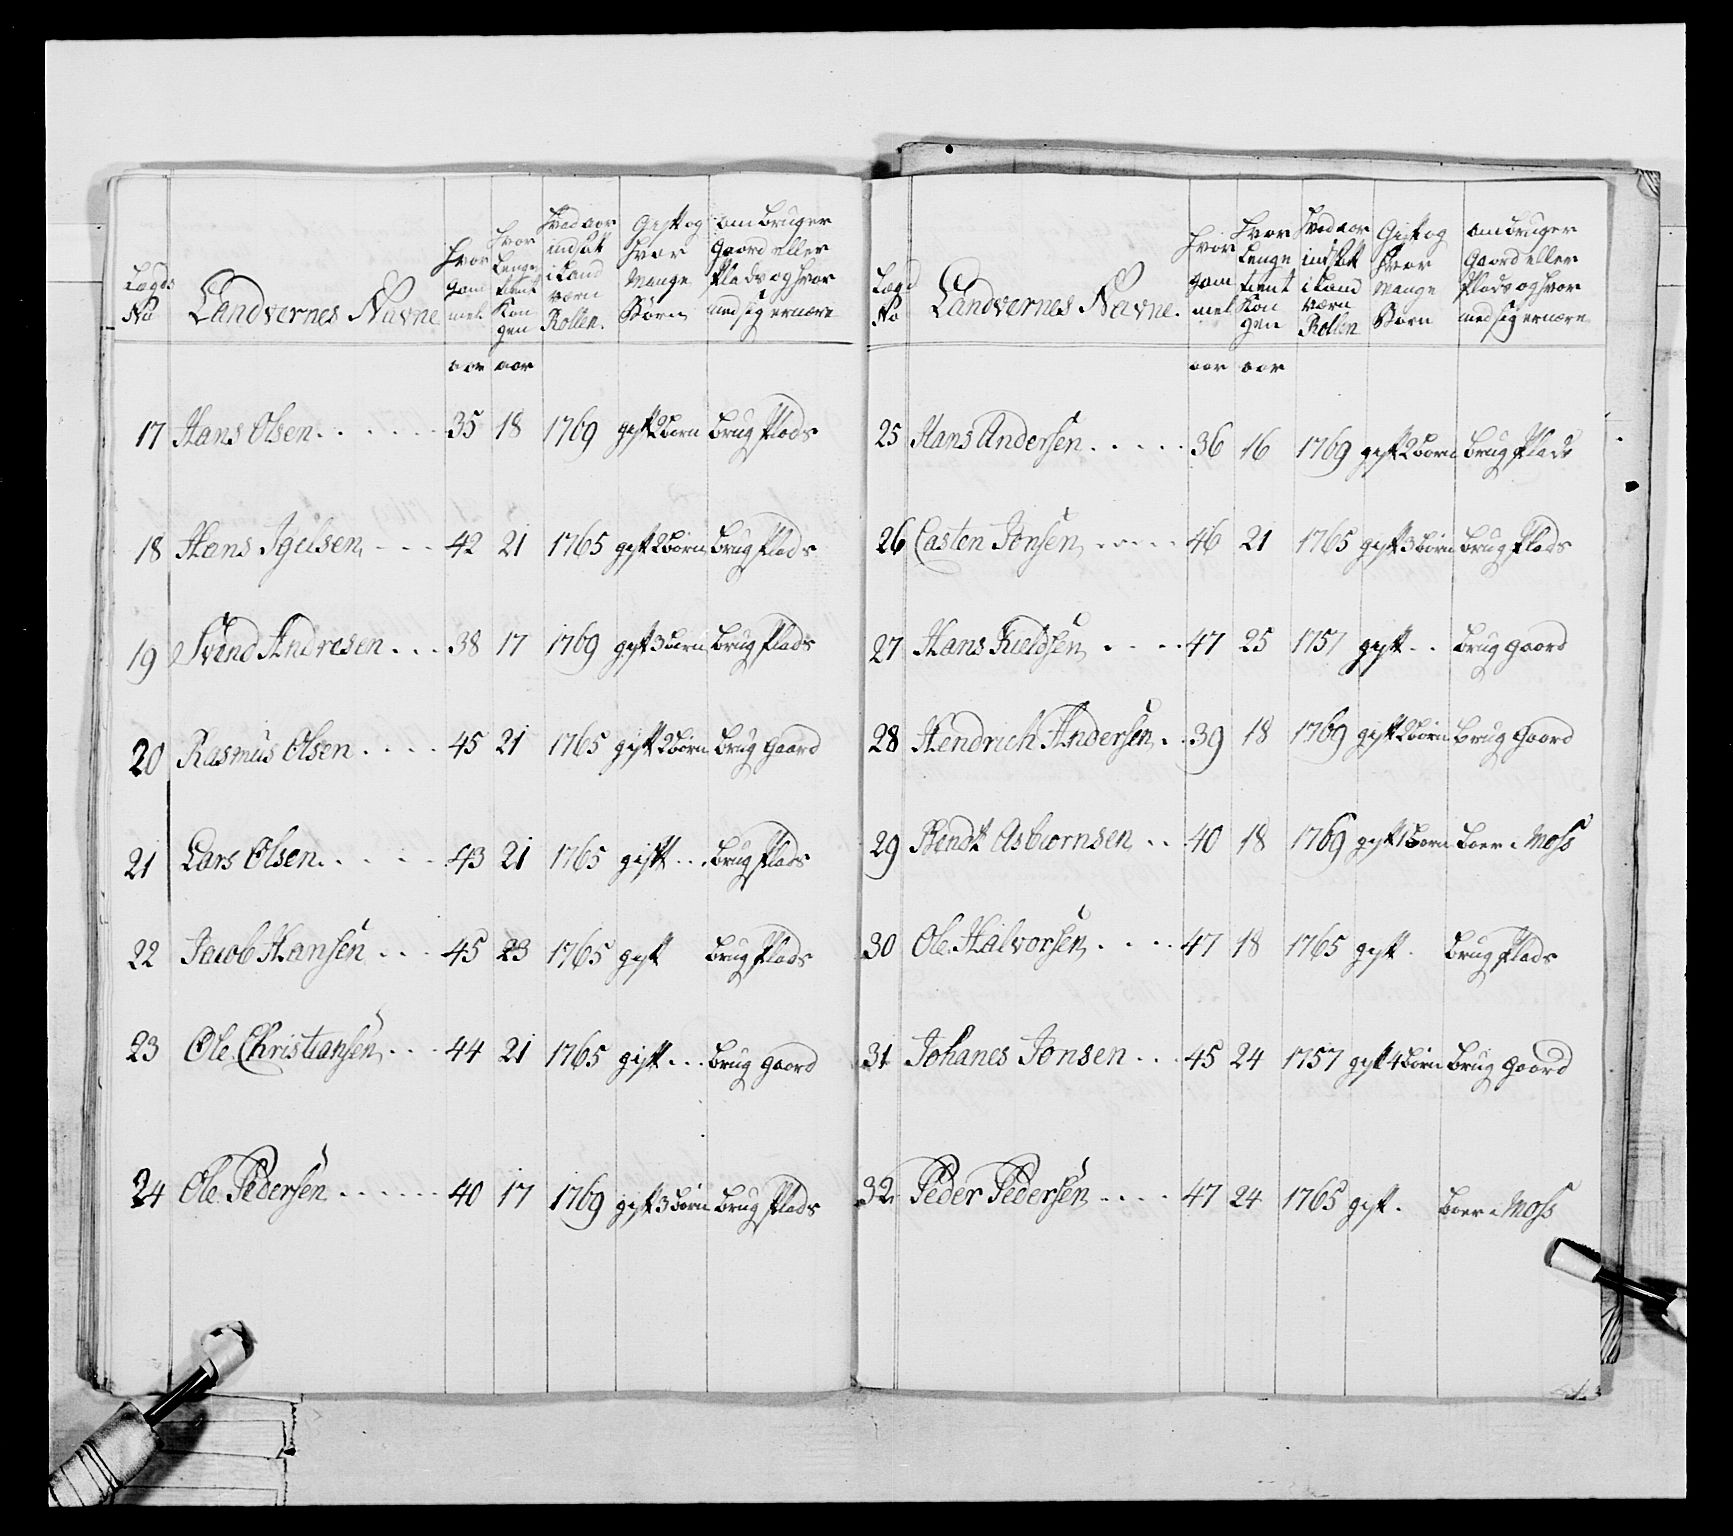 Lægds No
Landvernes Navne
Hvor gammel
Hvor Lenge tient Kongen
Hvad aar indsat i Land værn Rollen.
Gift og hvor Mange Børn
om bruger Gaord eller Plads og hvor med sig ernære
aar aar
17 Hans Olsen 35 18 1769 gift 2 børn Brug Plads
18 Hans Igelsen 42 21 1765 gift 2 børn Brug Plads
19 Svend Andresen 38 17 1769 gift 3 børn Brug Plads
20 Rasmus Olsen 45 21 1765 gift 2 børn Brug Gaard
21 Lars Olsen 43 21 1765 gift Brug Plads
22 Jacob Hansen 45 23 1765 gift Brug Plads
23 Ole Christiansen 44 21 1765 gift Brug Gaord
24 Ole Pedersen 40 17 1769 gift 3 børn Brug Plads
Lægd No
Landvernes Navne.
Hvor gammel
Hvor Lenge tient Kongen
Hvad aar indsatt i Land værn Rollen
Gift og hvor Mange Børn
om bruger Gaord eller Plads og hvor med sig ernære
aar aar
25 Hans Andersen 36 16 1769 gift 2 børn Brug Plads
26 Casten Jonsen 46 21 1765 gift 3 børn Brug Plads
27 Hans Kieldsen 47 25 1757 gift Brug Gaord
28 Hendrich Andersen 39 18 1769 gift 2 børn Brug Gaord
29 Bendt Asbiornsen 40 18 1769 gift 1 børn Boer i Moss
30 Ole Halvorsen 47 18 1765 gift Brug Plads
31 Johanes Jonsen 45 24 1757 gift 4 børn Brug Gaord
32 Peder Pedersen 47 24 1765 gift Boer i Moss